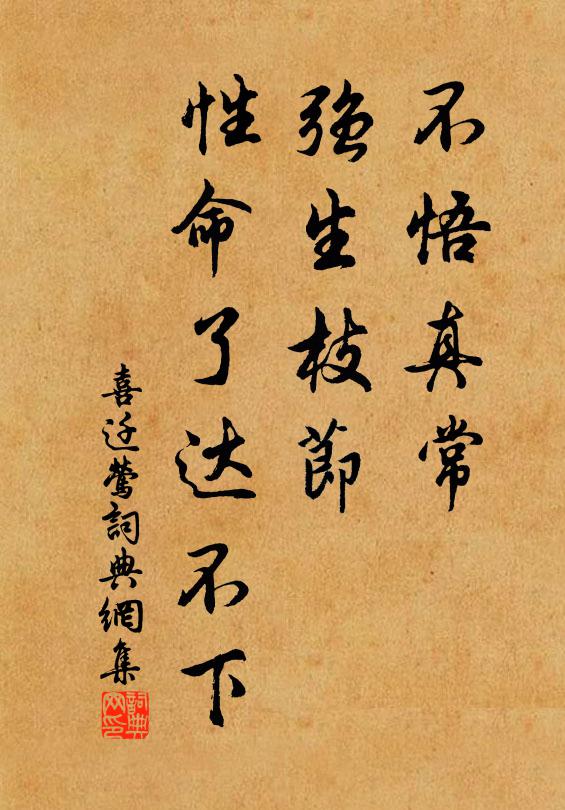 不悟真常
强生枝節
性命了达不下
喜迁鶯詞典網集
詞典网印